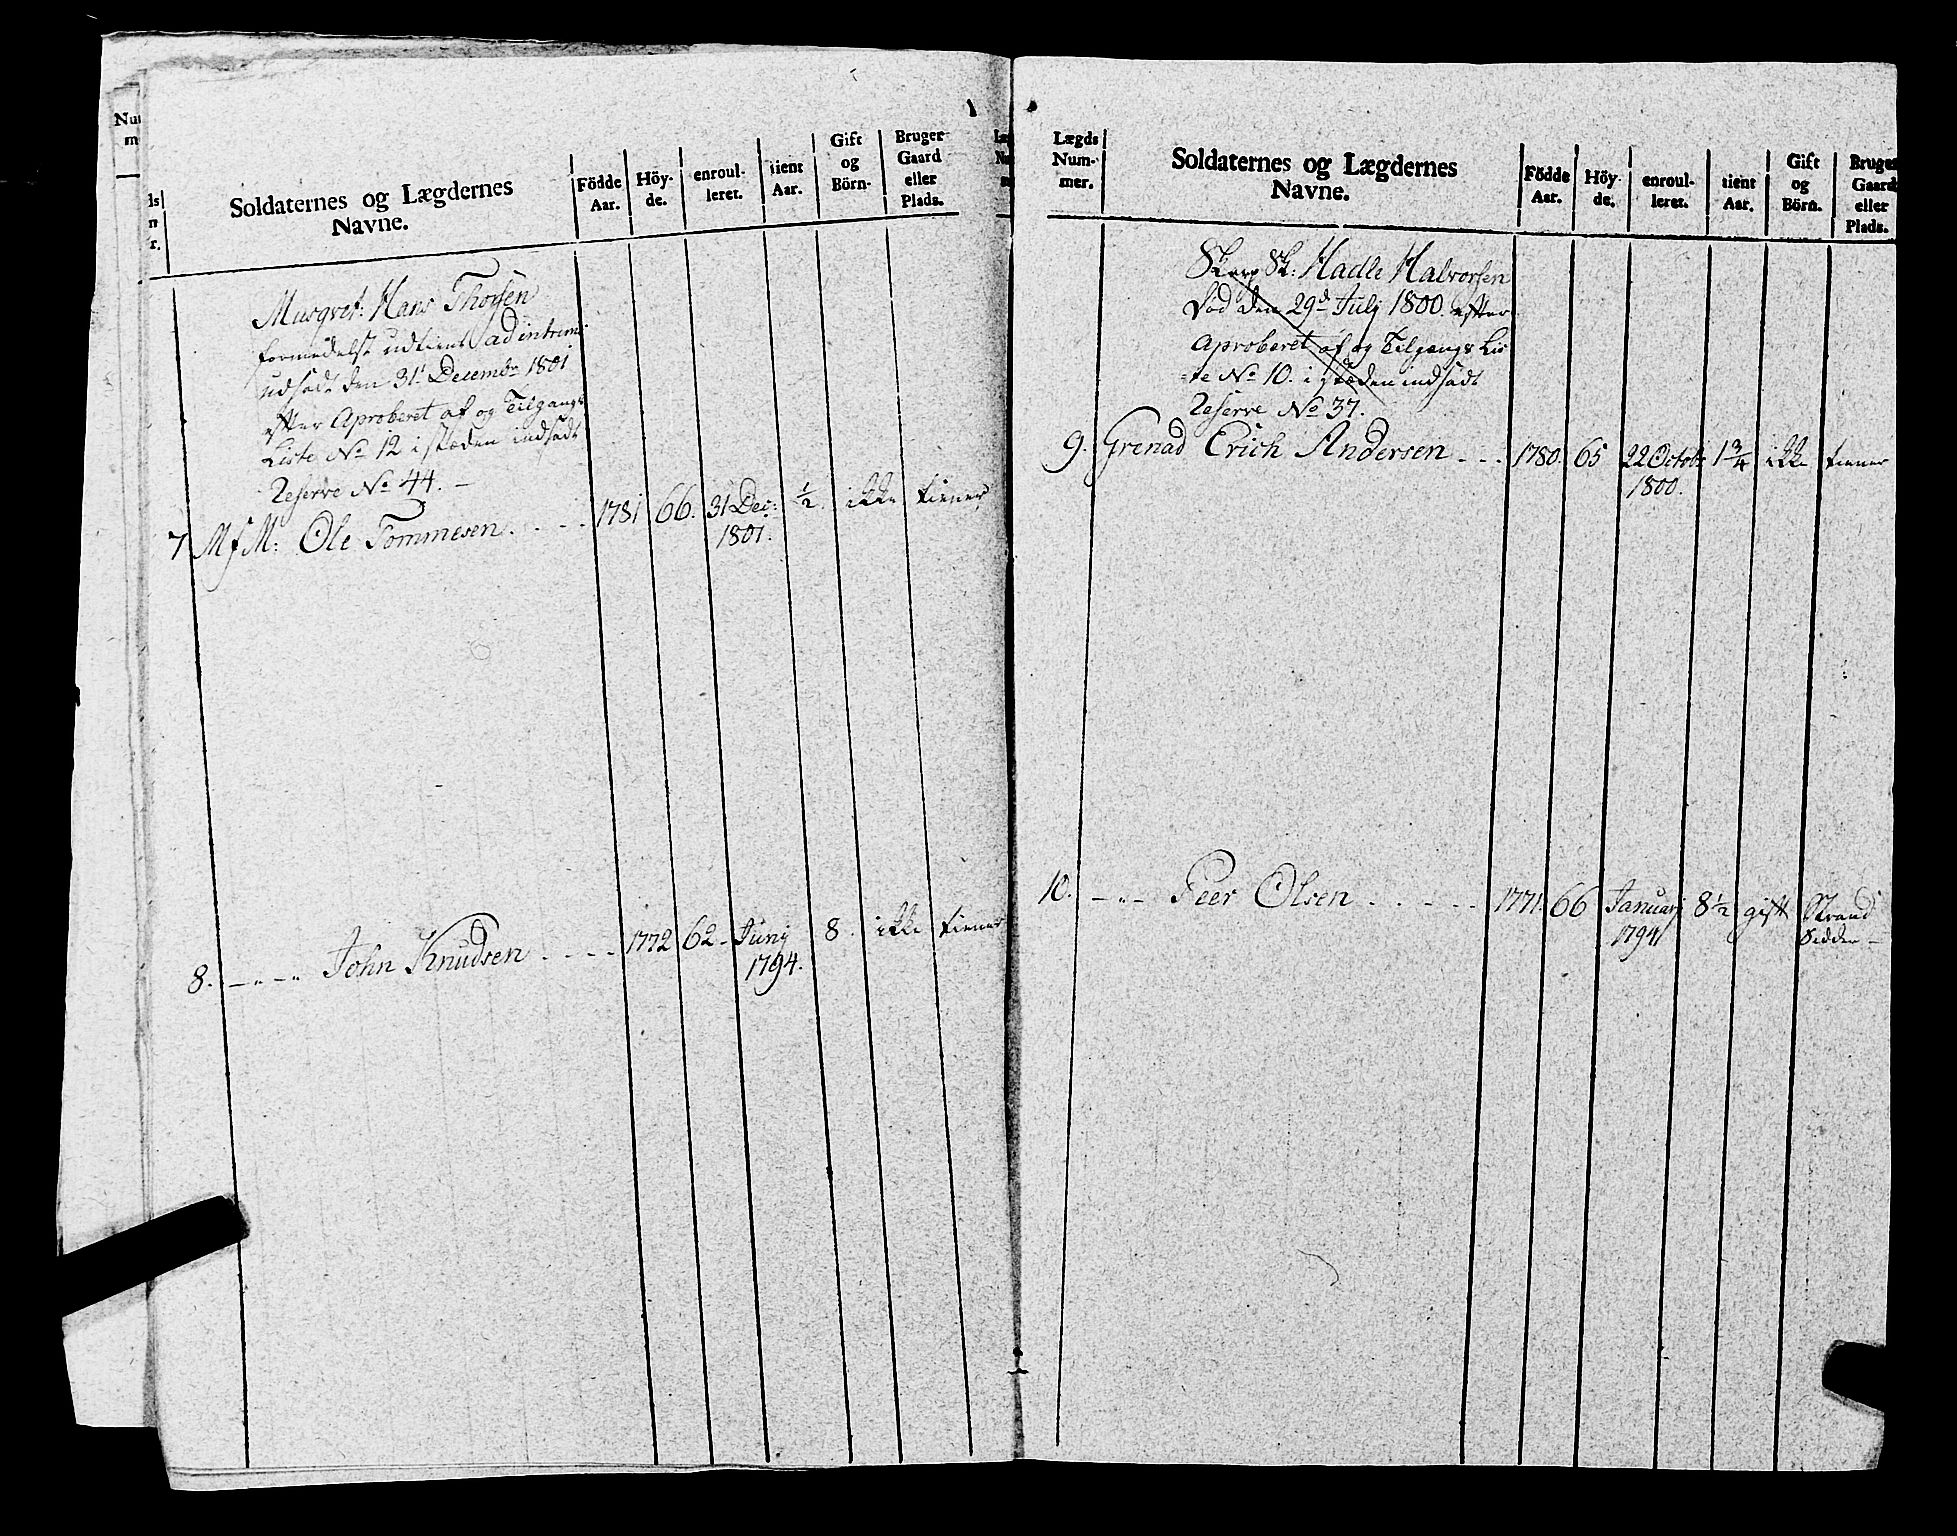 Num
m
ds
n
r.
Soldaternes og Lægdernes
Navne.
Födde
Aar.
Höy-
de.
enroul-
leret.
tient
Aar.
Gift
og
Börn.
Bruger
Gaard
eller
Plads.
Musqvet: Hans Thorsen
formedelst udtient ad intrim:
udsadt den 31t Decembr 1801
efter Aproberet af og Tilgangs
Liste No 12 i stæden indsadt
Reserve No 44. –
7 M f M: Ole Tommesen. . . . - 1781 66. 31 Dec: ½. ikke tiener
1801.
8. – „ – „ – John Knudsen . . . . 1772 62 – Junij 8. ikke tiener
1794.
Lægds
Num-
mer.
Soldaternes og Lægdernes
Navne.
Födde
Aar.
Höy-
de.
enroul-
leret.
tient
Aar.
Gift
og
Börn.
Bruger
Gaard
eller
Plads.
Skarp Sk: Hadle Halvorsen
död den 29d Julj 1800. efter
Aproberet af og Tilgangs Lis
te No 10. i stæden indsadt
Reserve No 37.
9. Grenad Erich Andersen . . . 1780. 65 22 Octobr 1¾ ikke tiener
1800.
10. – „ – Peer Olsen . . . . . 1771. 66 Januarj 8½ gift Strand
1794 Sidder –